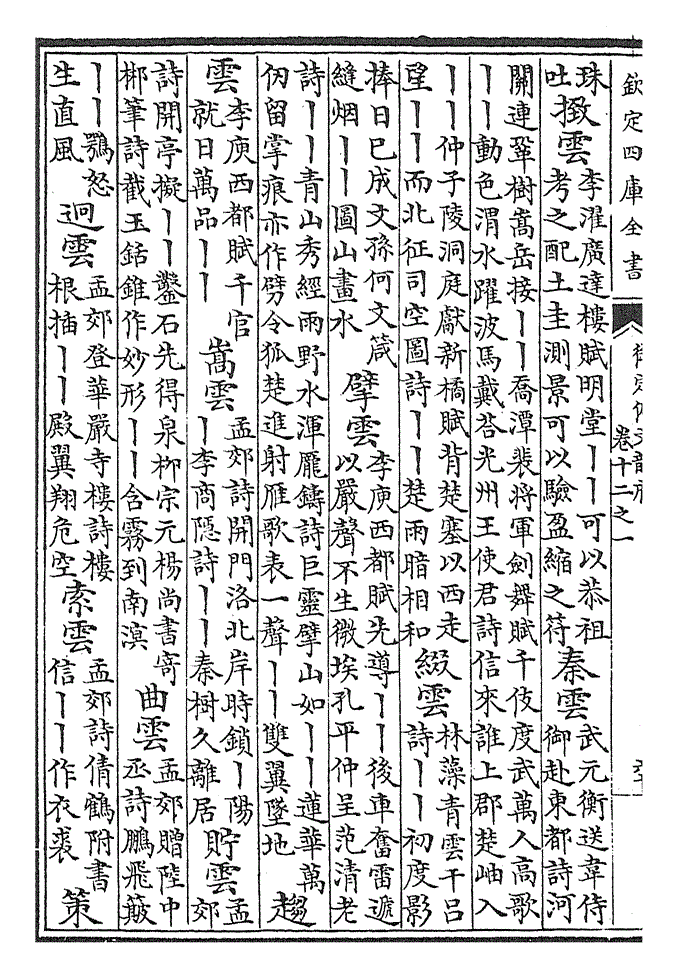 欽定四庫全書
御定佩文韻府
卷十二之一
珠
吐
雲
李濯廣達樓賦明堂丨丨可以恭祖
考之配土圭測景可以驗盈縮之符
秦雲
武元衡送韋侍
御赴東都詩河
關連鞏樹嵩岳接丨丨喬潭裴將軍劍舞賦千伎度武萬人高歌
丨丨動色渭水躍波馬戴荅光州王使君詩信來誰上郡楚岫入
丨丨仲子陵洞庭獻新橘賦背楚塞以西走
望丨丨而北征司空圖詩丨丨楚雨暗相和
綴雲
林藻青雲干呂
詩丨丨初度影
捧日已成文孫何文箴
縫烟丨丨圖山畫水
擘雲
李庾西都賦先導丨丨後車奮雷遞
以嚴聲不生微埃孔平仲呈范清老
詩丨丨青山秀經雨野水渾龎鑄詩巨靈擘山如丨丨蓮華萬
仞留掌痕亦作劈令狐楚進射雁歌表一聲丨丨雙翼墜地
趨
雲
李庾西都賦千官
就日萬品丨丨
嵩雲
孟郊詩開門洛北岸時鎖丨陽
丨李商隱詩丨丨秦樹久離居
貯雲
孟
郊
詩開亭擬丨丨鑿石先得泉柳宗元楊尚書寄
郴筆詩截玉銛錐作妙形丨丨含霧到南溟
曲雲
孟郊贈陸中
丞詩鵬飛簸
丨丨鶚怒
生直風
迥雲
孟郊登華嚴寺樓詩樓
根插丨丨殿翼翔危空
索雲
孟郊詩倩鶴附書
信丨丨作衣裘
策